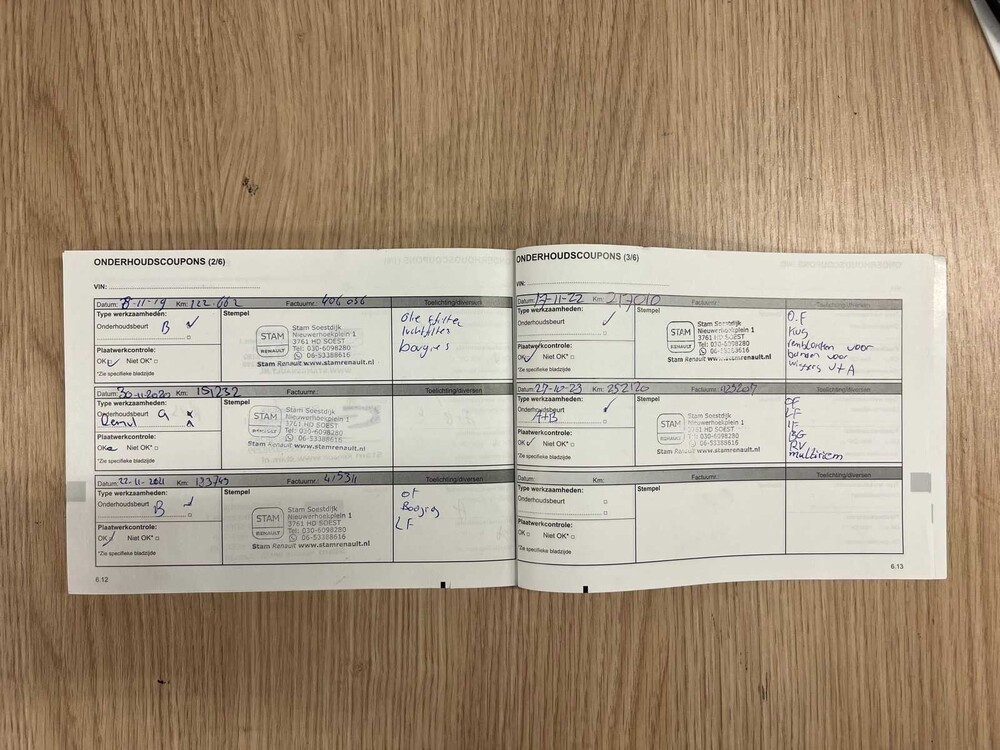 ONDERHOUDSCOUPONS (2/6)
VIN:
Datum: 8-11-19 Km: 122.662 Factuurnr.: 406056 Toelichting/diversen
Type werkzaamheden:
Onderhoudsbeurt B
Stempel
STAM
RENAULT
Stam Soestdijk
Nieuwerhoekplein 1
3761 HD SOEST
Tel: 030-6098280
06-53388616
Stam Renault www.stamrenault.nl
Olie filter
luchtfilter
bougies
Plaatwerkcontrole:
OK Niet OK*
*Zie specifieke bladzijde
Datum: 30-11-2020 Km: 151232 Factuurnr.: Toelichting/diversen
Type werkzaamheden:
Onderhoudsbeurt a
Stempel
STAM
RENAULT
Stam Soestdijk
Nieuwerhoekplein 1
3761 HD SOEST
Tel: 030-6098280
06-53388616
Stam Renault www.stamrenault.nl
Plaatwerkcontrole:
OK Niet OK*
*Zie specifieke bladzijde
Datum: 22-11-2021 Km: 183749 Factuurnr.: 415311 Toelichting/diversen
Type werkzaamheden:
Onderhoudsbeurt B
Stempel
STAM
RENAULT
Stam Soestdijk
Nieuwerhoekplein 1
3761 HD SOEST
Tel: 030-6098280
06-53388616
Stam Renault www.stamrenault.nl
OF
Bougies
LF
Plaatwerkcontrole:
OK Niet OK*
*Zie specifieke bladzijde
6.12
ONDERHOUDSCOUPONS (3/6)
VIN:
Datum: 17-11-22 Km: 217010 Factuurnr.: Toelichting/diversen
Type werkzaamheden:
Onderhoudsbeurt
Stempel
STAM
RENAULT
Stam Soestdijk
Nieuwerhoekplein 1
3761 HD SOEST
Tel: 030-6098280
06-53388616
Stam Renault www.stamrenault.nl
O.F
remblokken voor
banden voor
wissers V+A
Plaatwerkcontrole:
OK Niet OK*
*Zie specifieke bladzijde
Datum: 27-10-23 Km: 252120 Factuurnr.: 1125207 Toelichting/diversen
Type werkzaamheden:
Onderhoudsbeurt
A+B
Stempel
STAM
RENAULT
Stam Soestdijk
Nieuwerhoekplein 1
3761 HD SOEST
Tel: 030-6098280
06-53388616
Stam Renault www.stamrenault.nl
OF
LF
IF
BG
RV
multiriem
Plaatwerkcontrole:
OK Niet OK*
*Zie specifieke bladzijde
Datum: Km: Factuurnr.: Toelichting/diversen
Type werkzaamheden:
Onderhoudsbeurt
Stempel
Plaatwerkcontrole:
OK Niet OK*
*Zie specifieke bladzijde
6.13